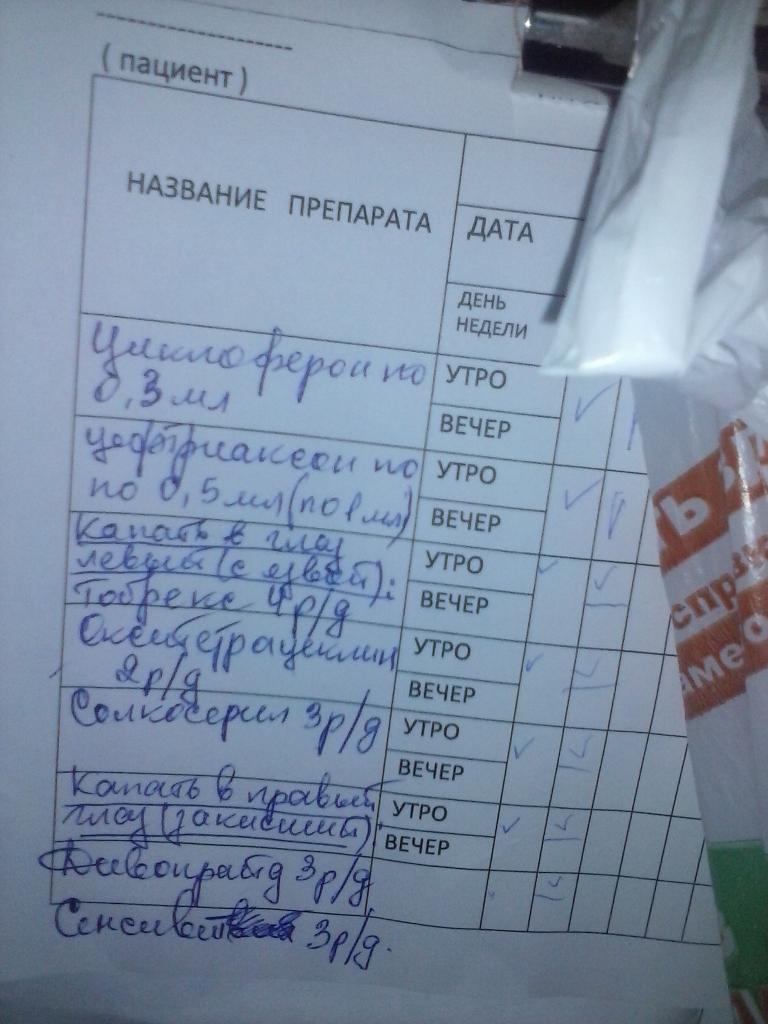 ( пациент )
НАЗВАНИЕ ПРЕПАРАТА
ДАТА
ДЕНЬ
НЕДЕЛИ
Циклоферон по
0,3 мл
УТРО
ВЕЧЕР
цефтриаксон по
по 0,5 мл (по 1 мл)
УТРО
ВЕЧЕР
Капать в глаз
левый (с язвой):
Тобрекс 4р/д
УТРО
ВЕЧЕР
Окситетрациклин
2р/д
УТРО
ВЕЧЕР
Солкосерил 3р/д
УТРО
ВЕЧЕР
Капать в правый
глаз (закисший):
УТРО
ВЕЧЕР
3р/д
3р/д.